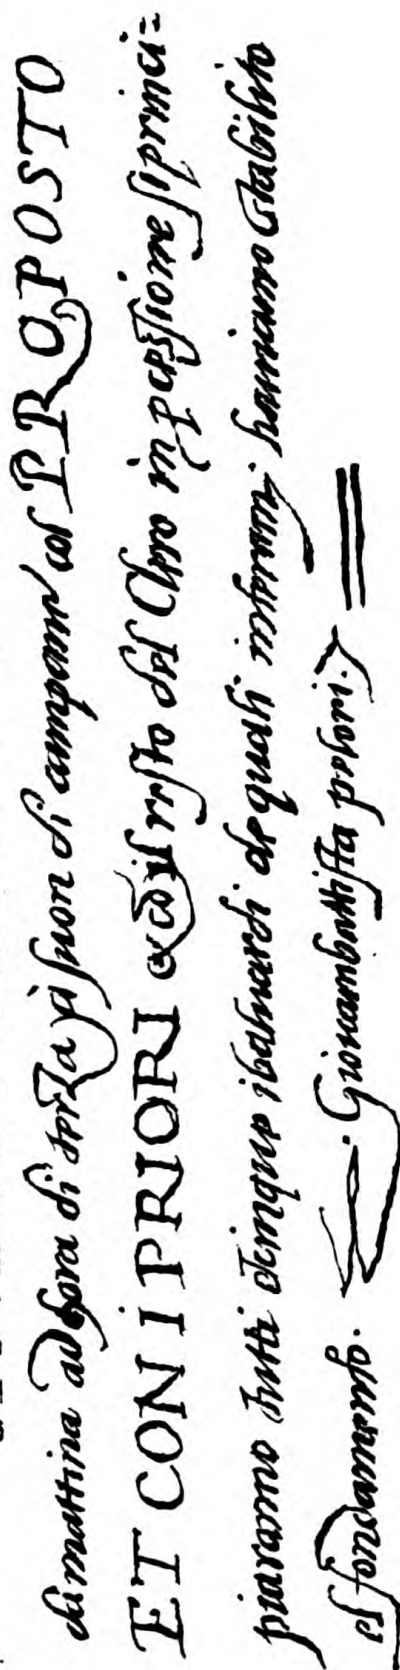 da mattina ad hora di terza p̱ il suon di campane col PROPOSTO
ET CON I PRIORI et cō il resto del Clero in pc̱essione si princi=
piaranno tutti dunque i balnardi de quali insieme haviamo stabilito
el fondamento. Giovambattista pelori.